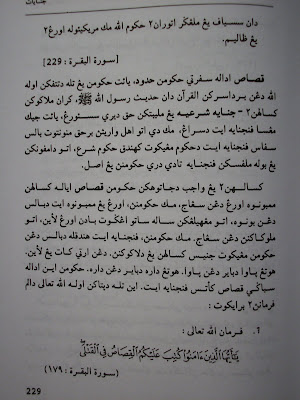 جنايات
دان سسياف يڠ ملڠݢر اتوران٢ حكوم الله مك مريكيتوله اورڠ٢
يڠ ظاليم.
[سورة البقرة : 229]
قصاص اداله سفرتي حكومن حدود، يائت حكومن يڠ تله دتتفكن اوله
الله دڠن برداسركن القرآن دان حديث رسول الله ﷺ، كران ملاكوكن
كسالهن٢ - جنايه شرعيه يڠ مليبتكن حق ديري سسئورڠ، يائت جيك
مڠسا فنجنايه ايت سدر اڠ، مك دي اتو اهل واريثن برحق منونتوت بالس
سفاي فنجنايه ايت دحكوم مڠيكوت كهندق حكوم شرع، اتو دامفونكن
يڠ بوله ملفسكن فنجنايه تادي دري حكومن يڠ اصل.
كسالهن٢ يڠ واجب دجاتوهكن حكومن قصاص اياله كسالهن
ممبونوه اورڠ دڠن سڠاج، مك حكومن، اورڠ يڠ ممبونوه ايت دبالس
دڠن بونوه، اتو مڠهيلڠكن ساله ساتو اڠݢوت بادن اورڠ لاٴين، اتو
ملوكاكن دڠن سڠاج، مك حكومنن، فنجنايه ايت هندقله دبالس دڠن
حكومن مڠيكوت جنيس كسالهن يڠ دلاكوكن. دڠن ارتي كات يڠ لاٴين،
هوتڠ ڽاوا دباير دڠن ڽاوا. هوتڠ داره دباير دڠن داره. حكومن اين اداله
سباݢاي حكومن قصاص كأتس فنجنايه ايت. اين تله دڽتاكن اوله الله تعالى دالم
فرمانن٢ برايكوت :
أ. فرمان الله تعالى :
يَٰٓأَيُّهَا ٱلَّذِينَ ءَامَنُوا۟ كُتِبَ عَلَيْكُمُ ٱلْقِصَاصُ فِى ٱلْقَتْلَى
(سورة البقرة : ١٧٩)
229